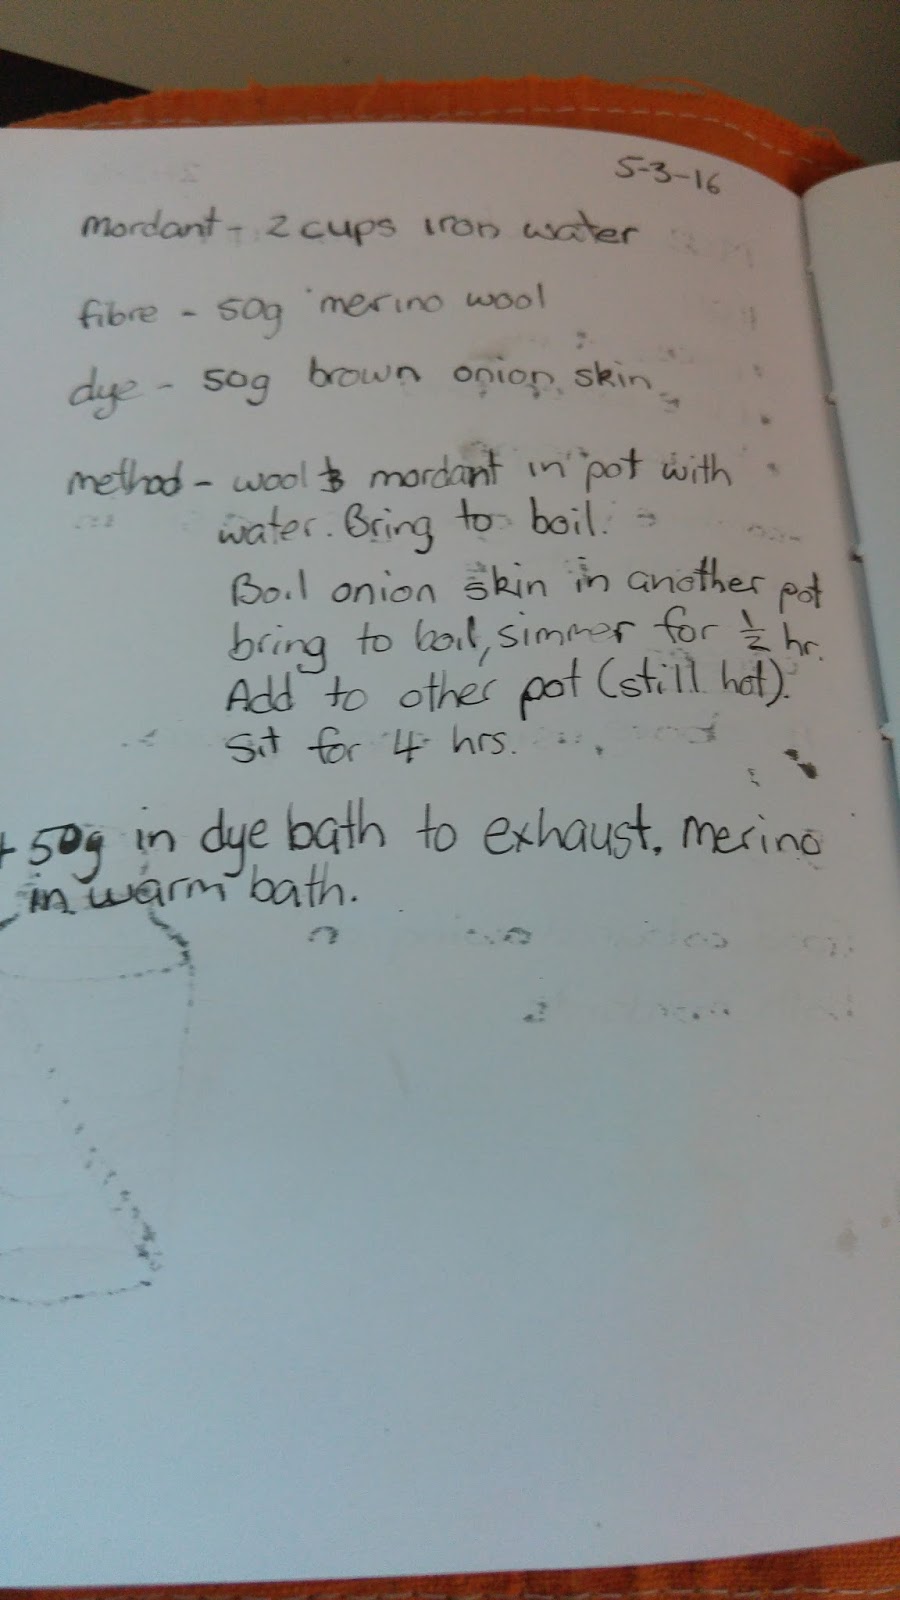 5-3-16
mordant - 2 cups iron water
fibre - 50g merino wool
dye - 50g brown onion skin
method - wool & mordant in pot with
water. Bring to boil.
Boil onion skin in another pot
bring to boil, simmer for ½ hr.
Add to other pot (still hot).
Sit for 4 hrs.
+ 50g in dye bath to exhaust. merino
in warm bath.